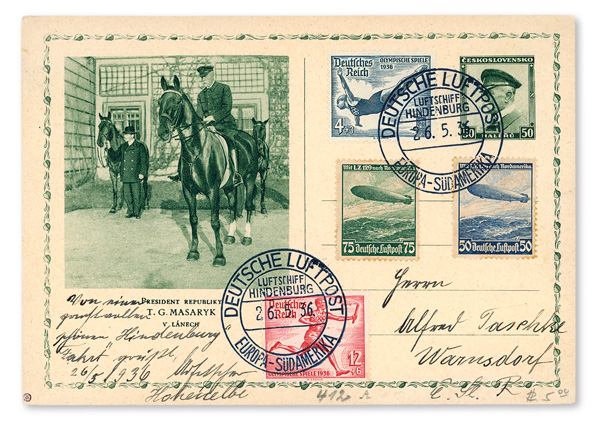 Deutsches Reich
OLYMPISCHE SPIELE 1936
4+3
ČESKOSLOVENSKO
50 HALÉŘŮ 50
DEUTSCHE LUFTPOST
LUFTSCHIFF
HINDENBURG
26.5.36
EUROPA-SÜDAMERIKA
Mit LZ 129 nach Nordamerika
75 Deutsche Luftpost 75
Mit LZ 129 nach Nordamerika
50 Deutsche Luftpost 50
PRESIDENT REPUBLIKY
T. G. MASARYK
V LÁNECH
Von einer
prachtvollen
schönen Hindenburg
Fahrt grüßt
26/5 1936
Hohenelbe
DEUTSCHE LUFTPOST
LUFTSCHIFF
HINDENBURG
26.5.36
EUROPA-SÜDAMERIKA
Deutsches
Reich
12
+6
OLYMPISCHE SPIELE 1936
Herrn
Alfred Taschke
Warnsdorf
Č. S. R.
412 A
$5.00